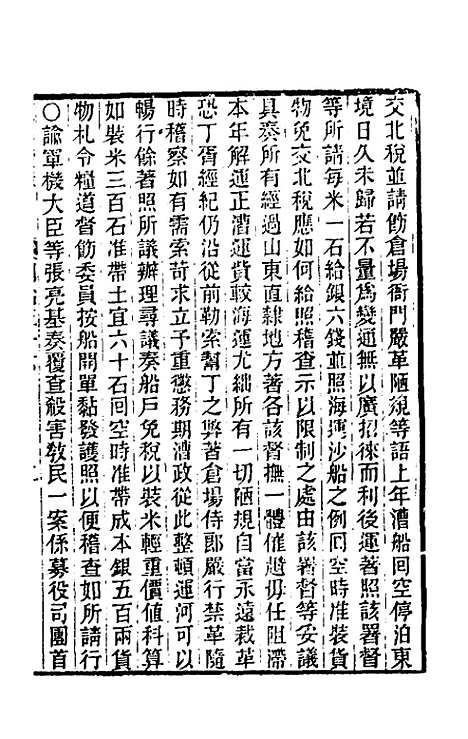 交北稅並請飭倉場衙門嚴革陋規等語上年漕船回空停泊東
境日久未歸若不量爲變通無以廣招徠而利後運著照該署督
等所請每米一石給銀六錢並照海運沙船之例回空時准裝貨
物免交北稅應如何給照稽查示以限制之處由該署督等妥議
具奏所有經過山東直隸地方著各該督撫一體催趲毋任阻滯
本年解運正漕運費較海運尤絀所有一切陋規自當永遠裁革
恐丁胥經紀仍沿從前勒索幫丁之弊著倉場侍郎嚴行禁革隨
時稽察如有需索苛求立予重懲務期漕政從此整頓運河可以
暢行餘著照所議辦理尋議奏船戶免稅以裝米輕重價値科算
如裝米三百石准帶土宜六十石回空時准帶成本銀五百兩貨
物札令糧道督飭委員按船開單黏發護照以便稽查如所請行
○諭軍機大臣等張亮基奏覆查殺害敎民一案係募役司團首